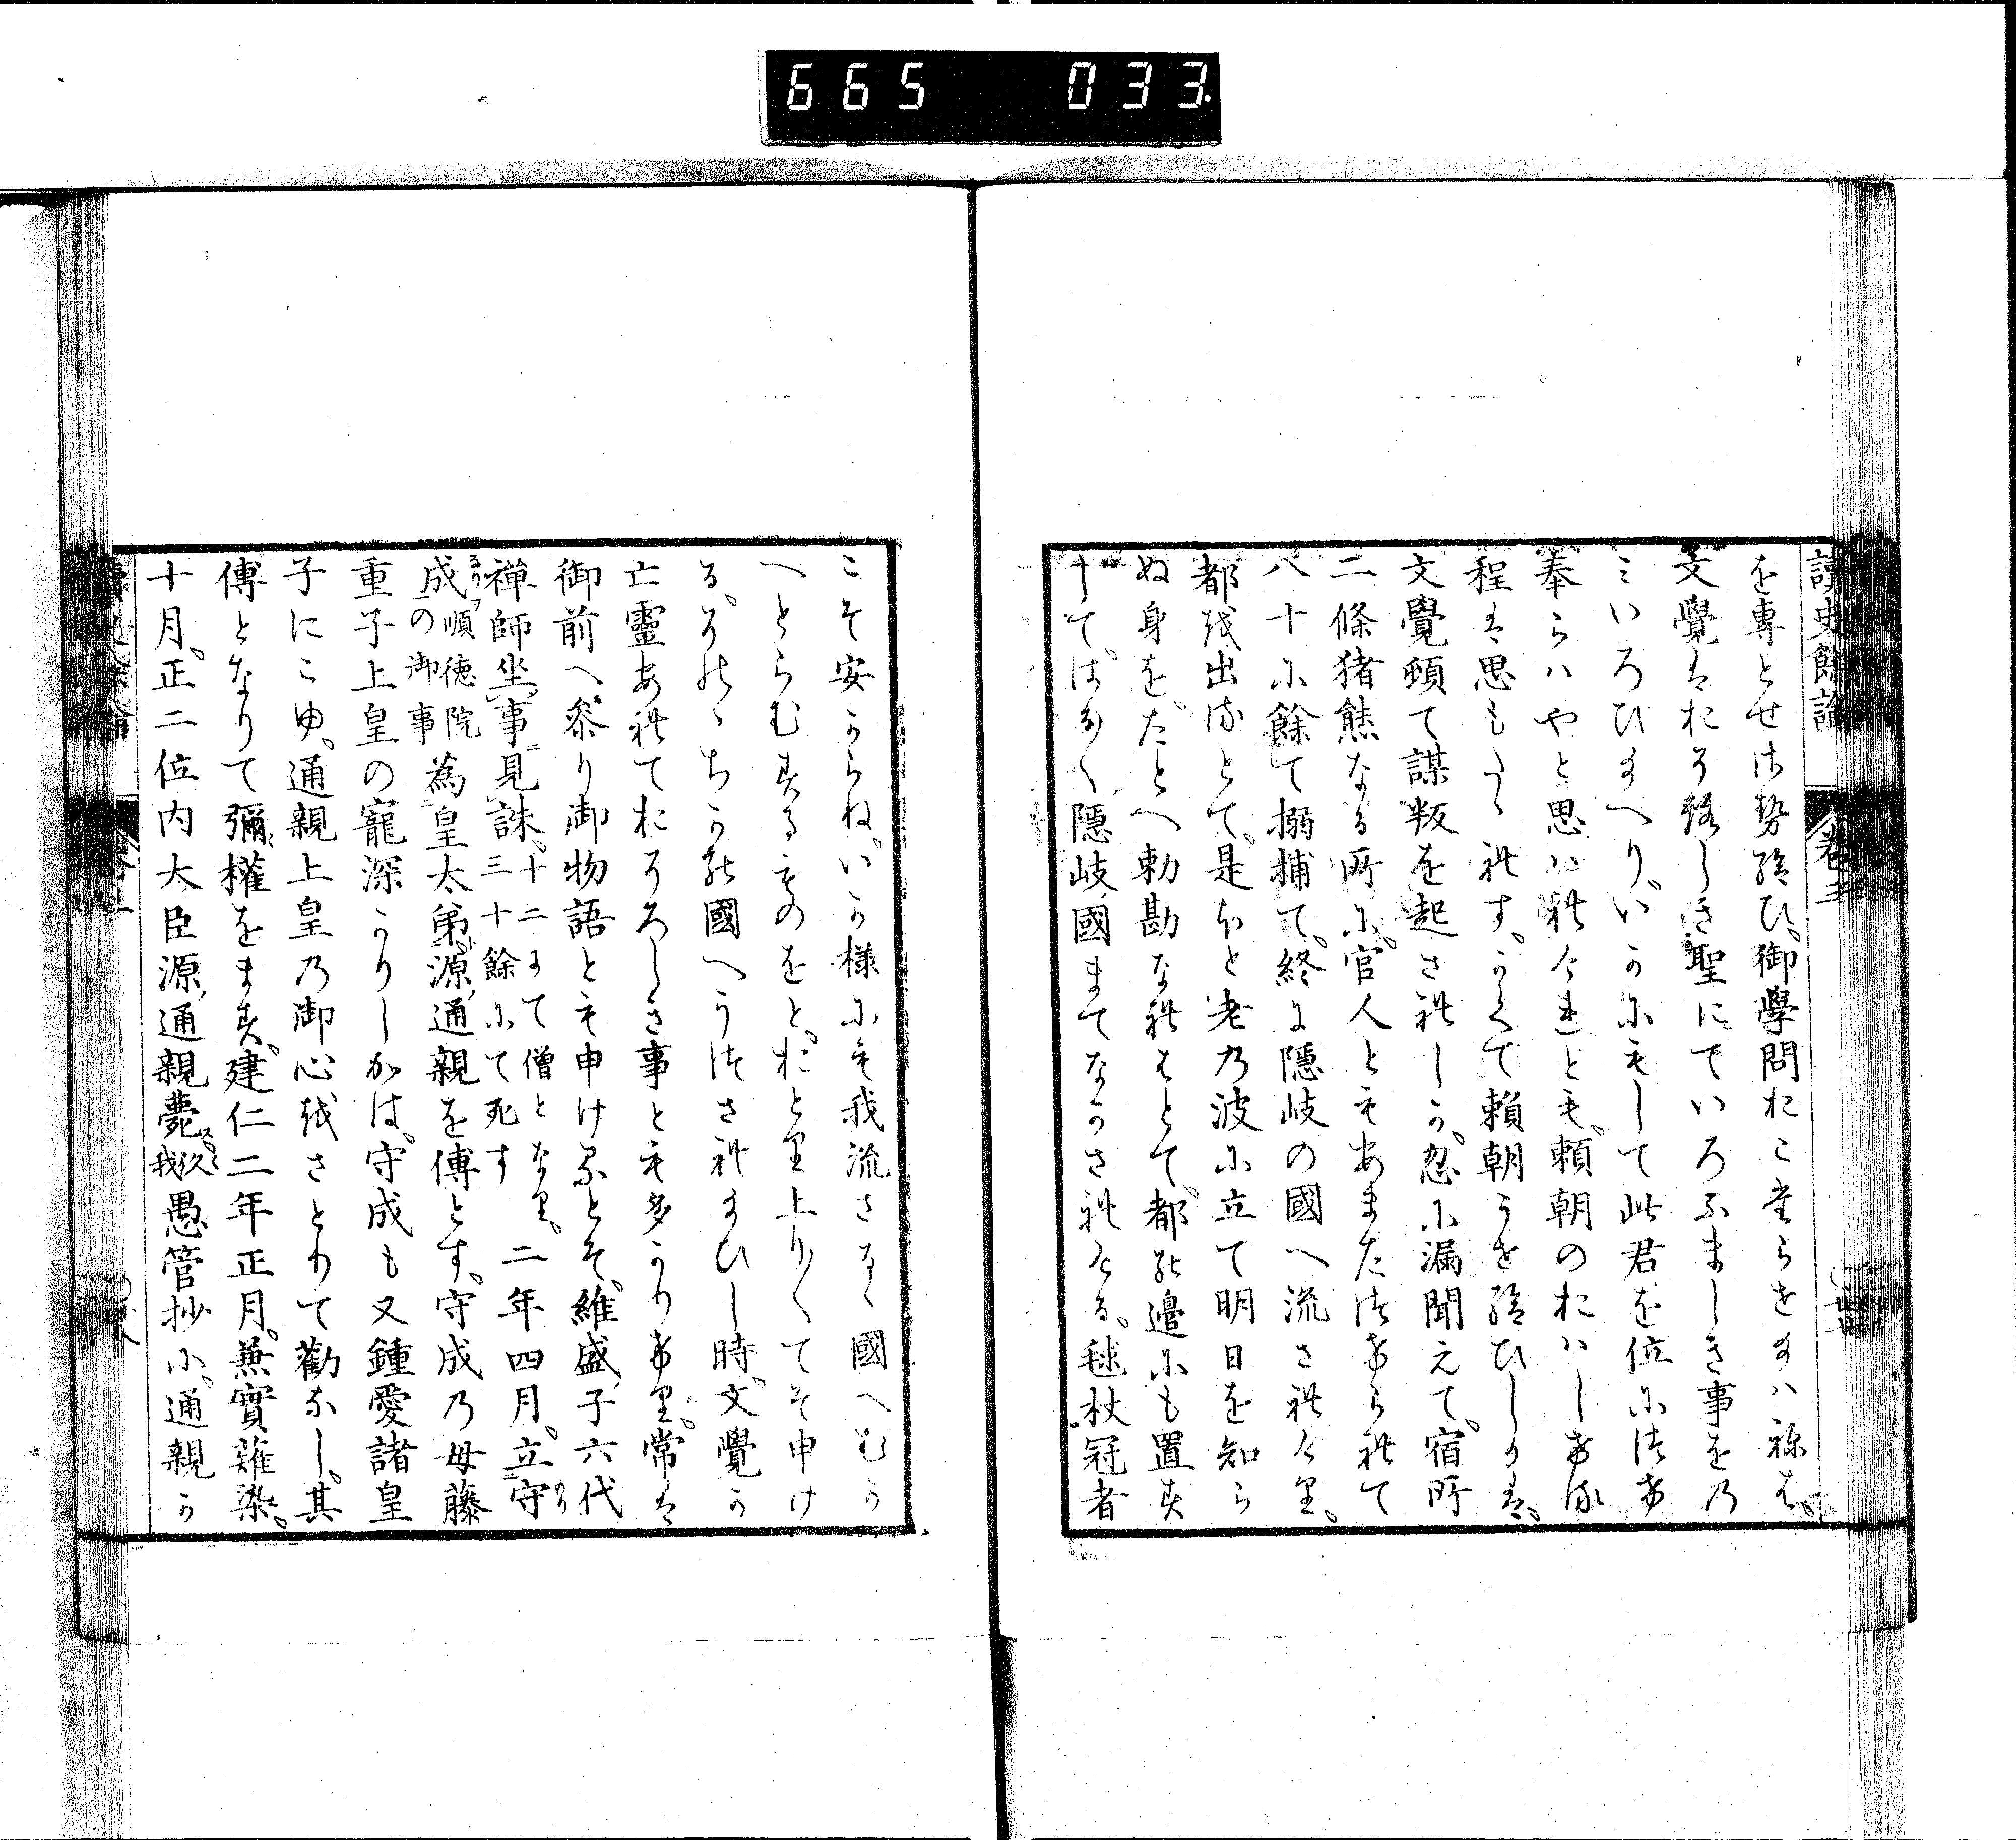 665 033.
讀史餘論 卷三
を專とせさせ給ひ。御學問おこたらせ玉ハ祢は。
文覺はおそろしき聖にていろふましき事をの
ミいろひ玉へり。いかにもして此君を位につけ
奉らハやと思ハれけれとも。賴朝のおハしける
程は思もたゝれす。かくて賴朝うせ給ひしかは。
文覺頓て謀叛を起されしか。忽に漏聞えて。宿所
二條猪熊なる所に。官人ともあまたつけられて
八十に餘て搦捕て。終に隱岐の國へ流されけり。
都を出るとて。是ほと老の波に立て明日を知ら
ぬ身を。たとへ勅勘なれはとて。都の邊にも置す
して。はるく隱岐國まてなかされける。毬杖冠者
こそ安からね。いか樣にも我流さるゝ國へむか
へとらむするものをと。おとり上りくてそ申け
る。そのゝちかの國へうつされ玉ひし時。文覺か
亡靈あれておそろしき事とも多かりけり。常は
御前へ參り御物語とも申けるとそ。維盛子六代
禪師坐事見誅。十二にて僧となり。三十餘にて死す 二年四月。立守
成 順德院の御事 為皇太弟。源通親を傅とす。守成の母藤
重子上皇の寵深かりしかは。守成も又鍾愛諸皇
子にこゆ。通親上皇の御心をさとりて勸なし。其
傅となりて彌權をます。建仁二年正月。兼實薙染。
十月。正二位内大臣源通親薨。久我 愚管抄に。通親か